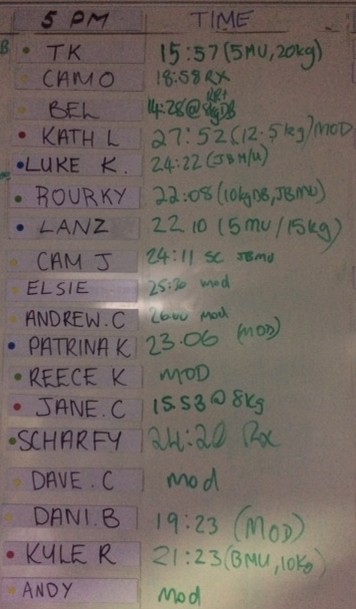 5 PM TIME
B TK 15:57 (5MU, 20kg)
CAMO 18:58 RX
BEL 14:28 @
KATH L 27:52 (12.5kg) MOD
LUKE K. 24:22 (JBM/U)
ROURKY 22:08 (10kgDB, JBMU)
LANZ 22 10 (5MU/15kg)
CAM J 24:11 SC JBMU
ELSIE 25:30 mod
ANDREW.C 26:00 mod
PATRINA K 23.06 (MOD)
REECE K MOD
JANE.C 15.53 @ 8kg
SCHARFY 24:20 Rx
DAVE.C mod
DANI.B 19:23 (MOD)
KYLE R 21:23 (3MU, 10kg)
ANDY mod